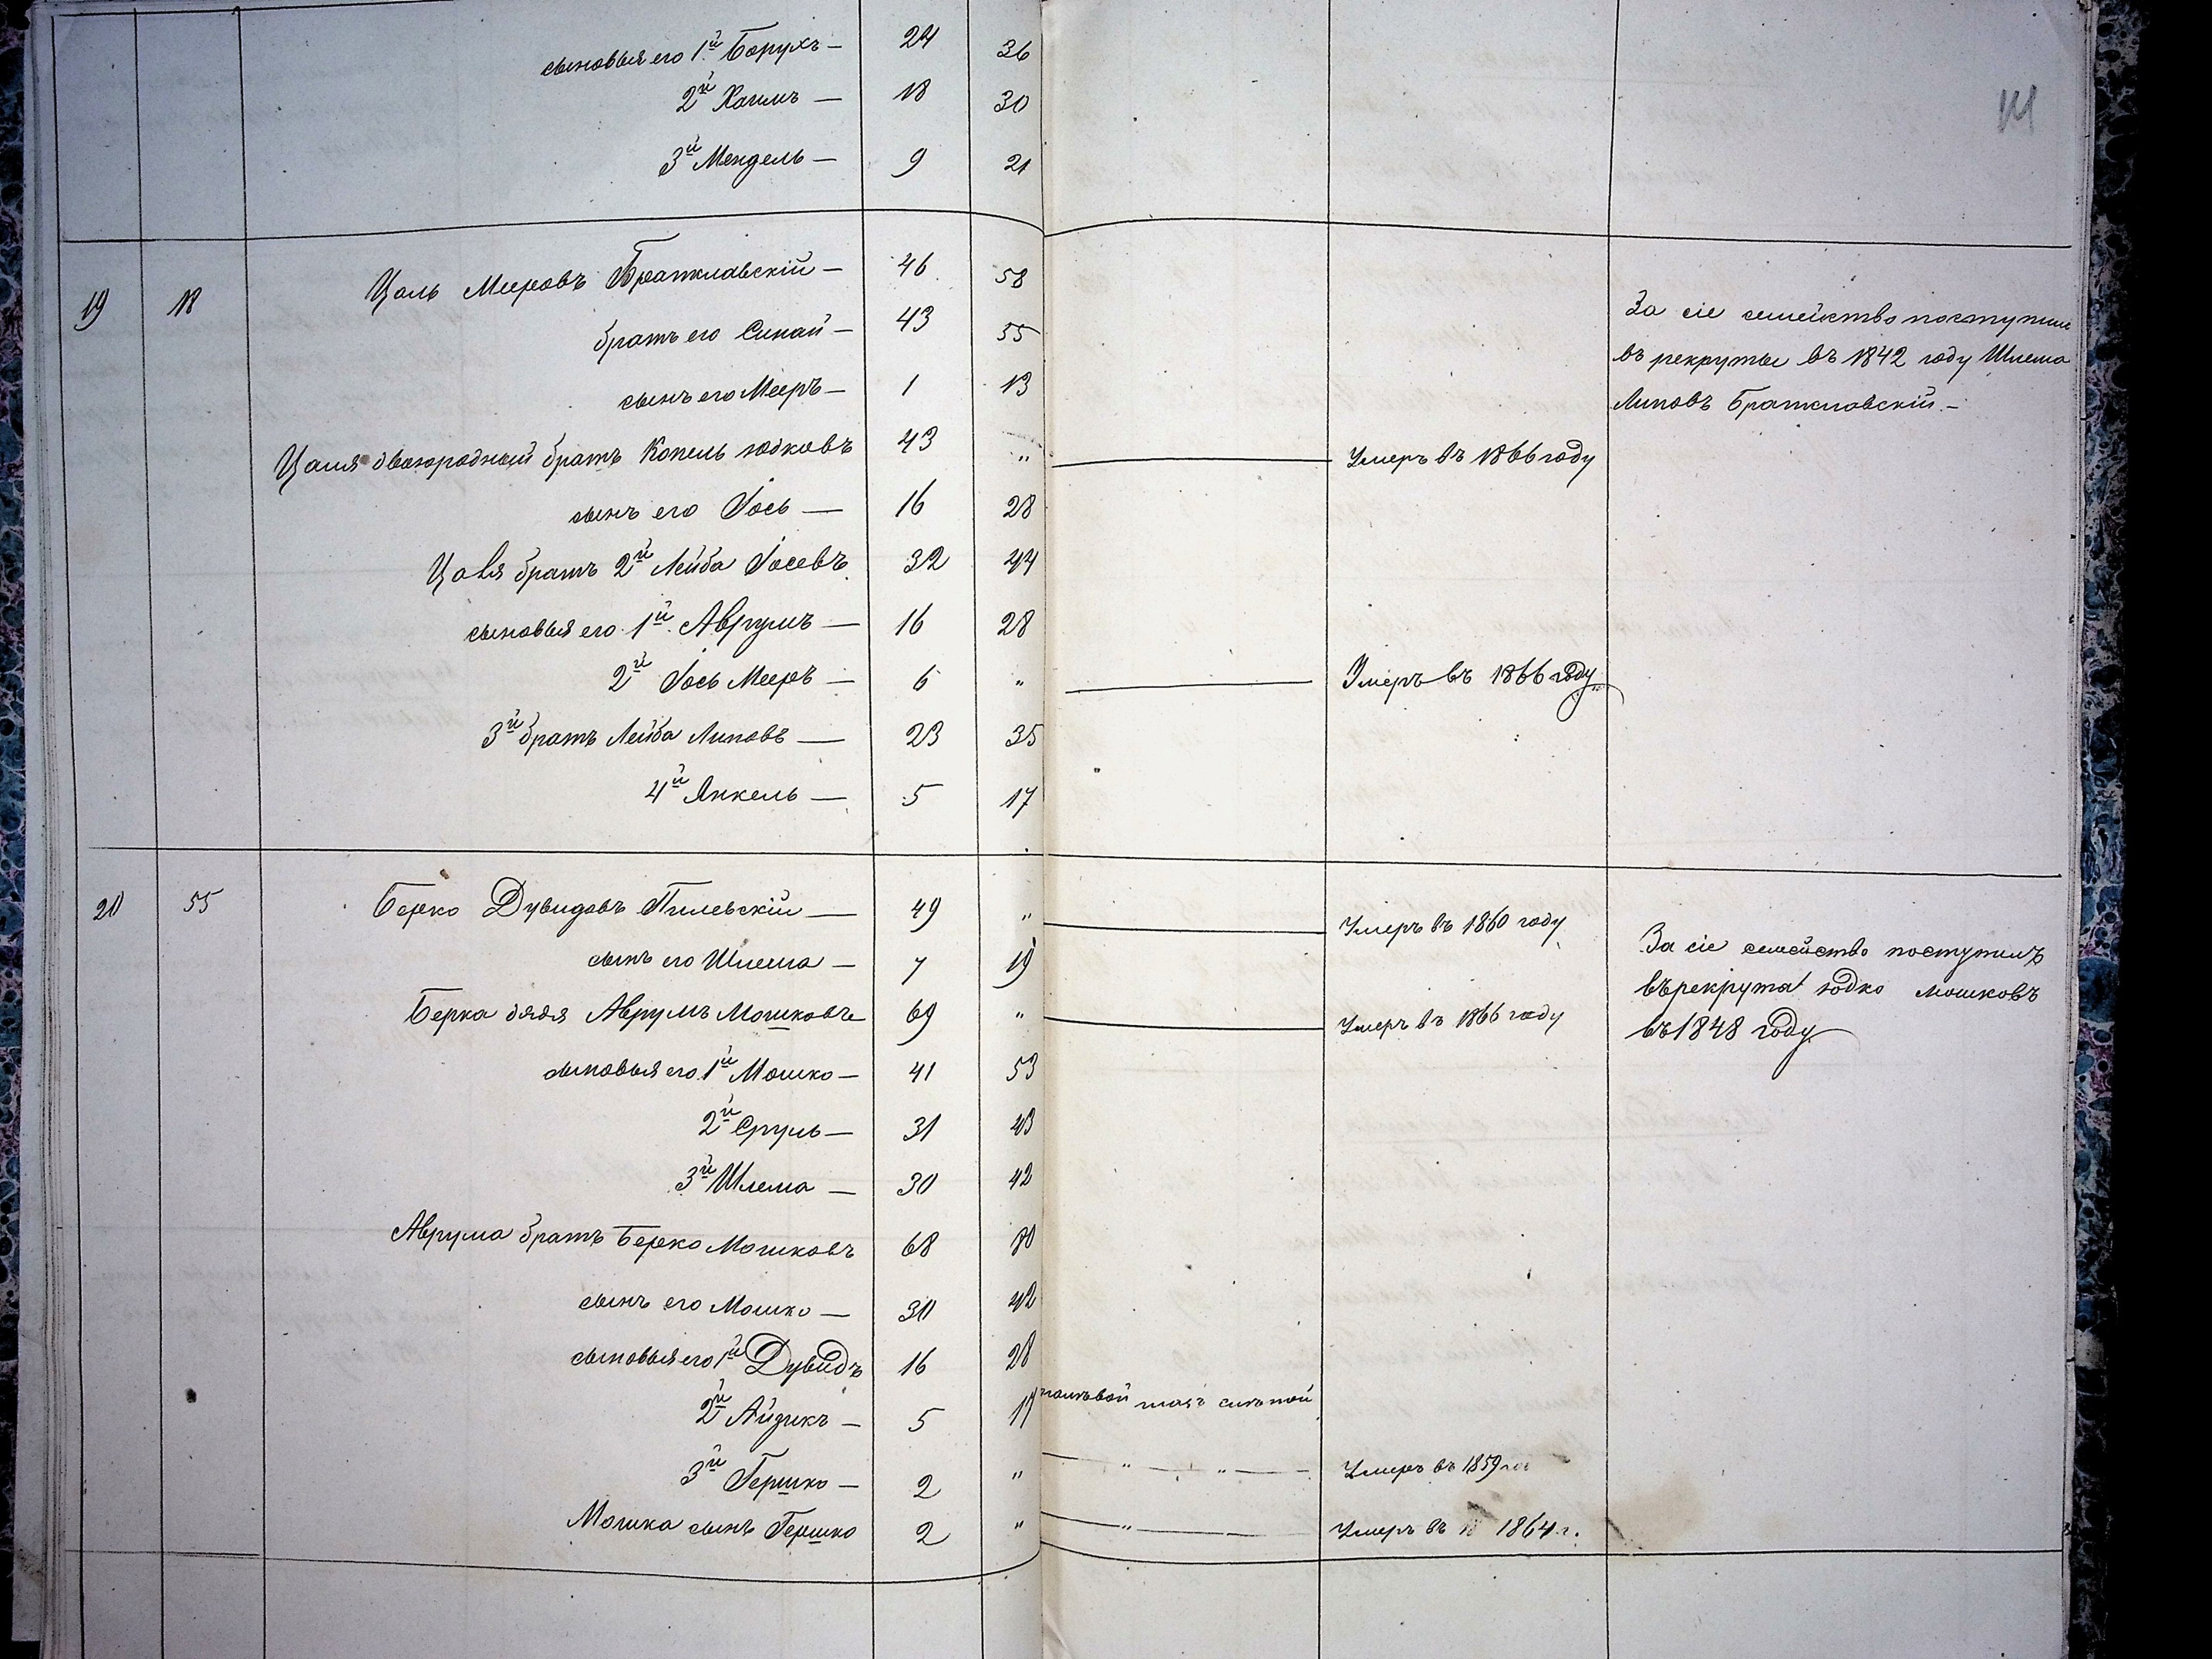 сыновья его 1й Борухъ — 24 36
2й Хаимъ — 18 30
3й Мендель — 9 21
19 18 Цаль Мееровъ Брацлавскій — 46 58
братъ его Синай — 43 55
сынъ его Мееръ — 1 13
Цаля двоюродный братъ Копель Юдковъ 43 " Умеръ въ 1866 году
сынъ его Іось — 16 28
Цаля братъ 2й Лейба Іосевъ 32 44
сыновья его 1й Аврумъ — 16 28
2й Іось Мееръ — 6 " Умеръ въ 1866 году
3й братъ Лейба Липовъ — 23 35
4й Янкель — 5 17
За сіе семейство поступилъ
въ рекруты въ 1842 году Шлема
Липовъ Брацлавскій. —
20 55 Берко Дувидовъ Пилевскій — 49 " Умеръ въ 1860 году
сынъ его Шлема — 7 19
Берка дядя Аврумъ Мошковъ 69 " Умеръ въ 1866 году
сыновья его 1й Мошко — 41 53
2й Сруль — 31 43
3й Шлема — 30 42
Аврума братъ Берко Мошковъ 68 80
сынъ его Мошко — 30 42
сыновья его 1й Дувидъ 16 28
2й Айзикъ — 5 17
3й Гершко — 2 " Умеръ въ 1859
Мошка сынъ Гершко 2 " Умеръ въ 1864 г.
За сіе семейство поступилъ
въ рекрута Юдко Мошковъ
въ 1848 году